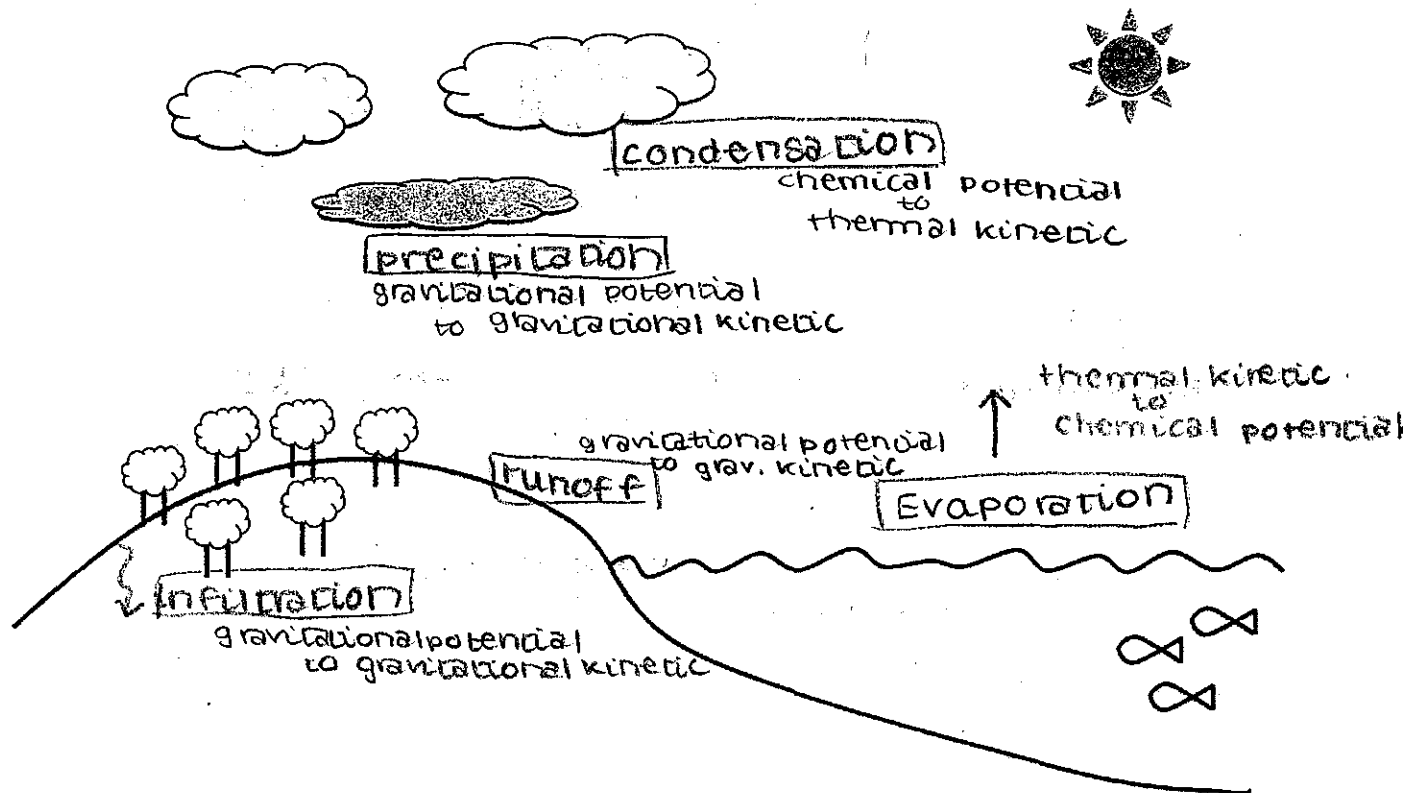 condensation
chemical potential
to
thermal kinetic
precipitation
gravitational potential
to gravitational kinetic
thermal kinetic
to
chemical potential
gravitational potential
to grav. kinetic
runoff
Evaporation
Infiltration
gravitational potential
to gravitational kinetic